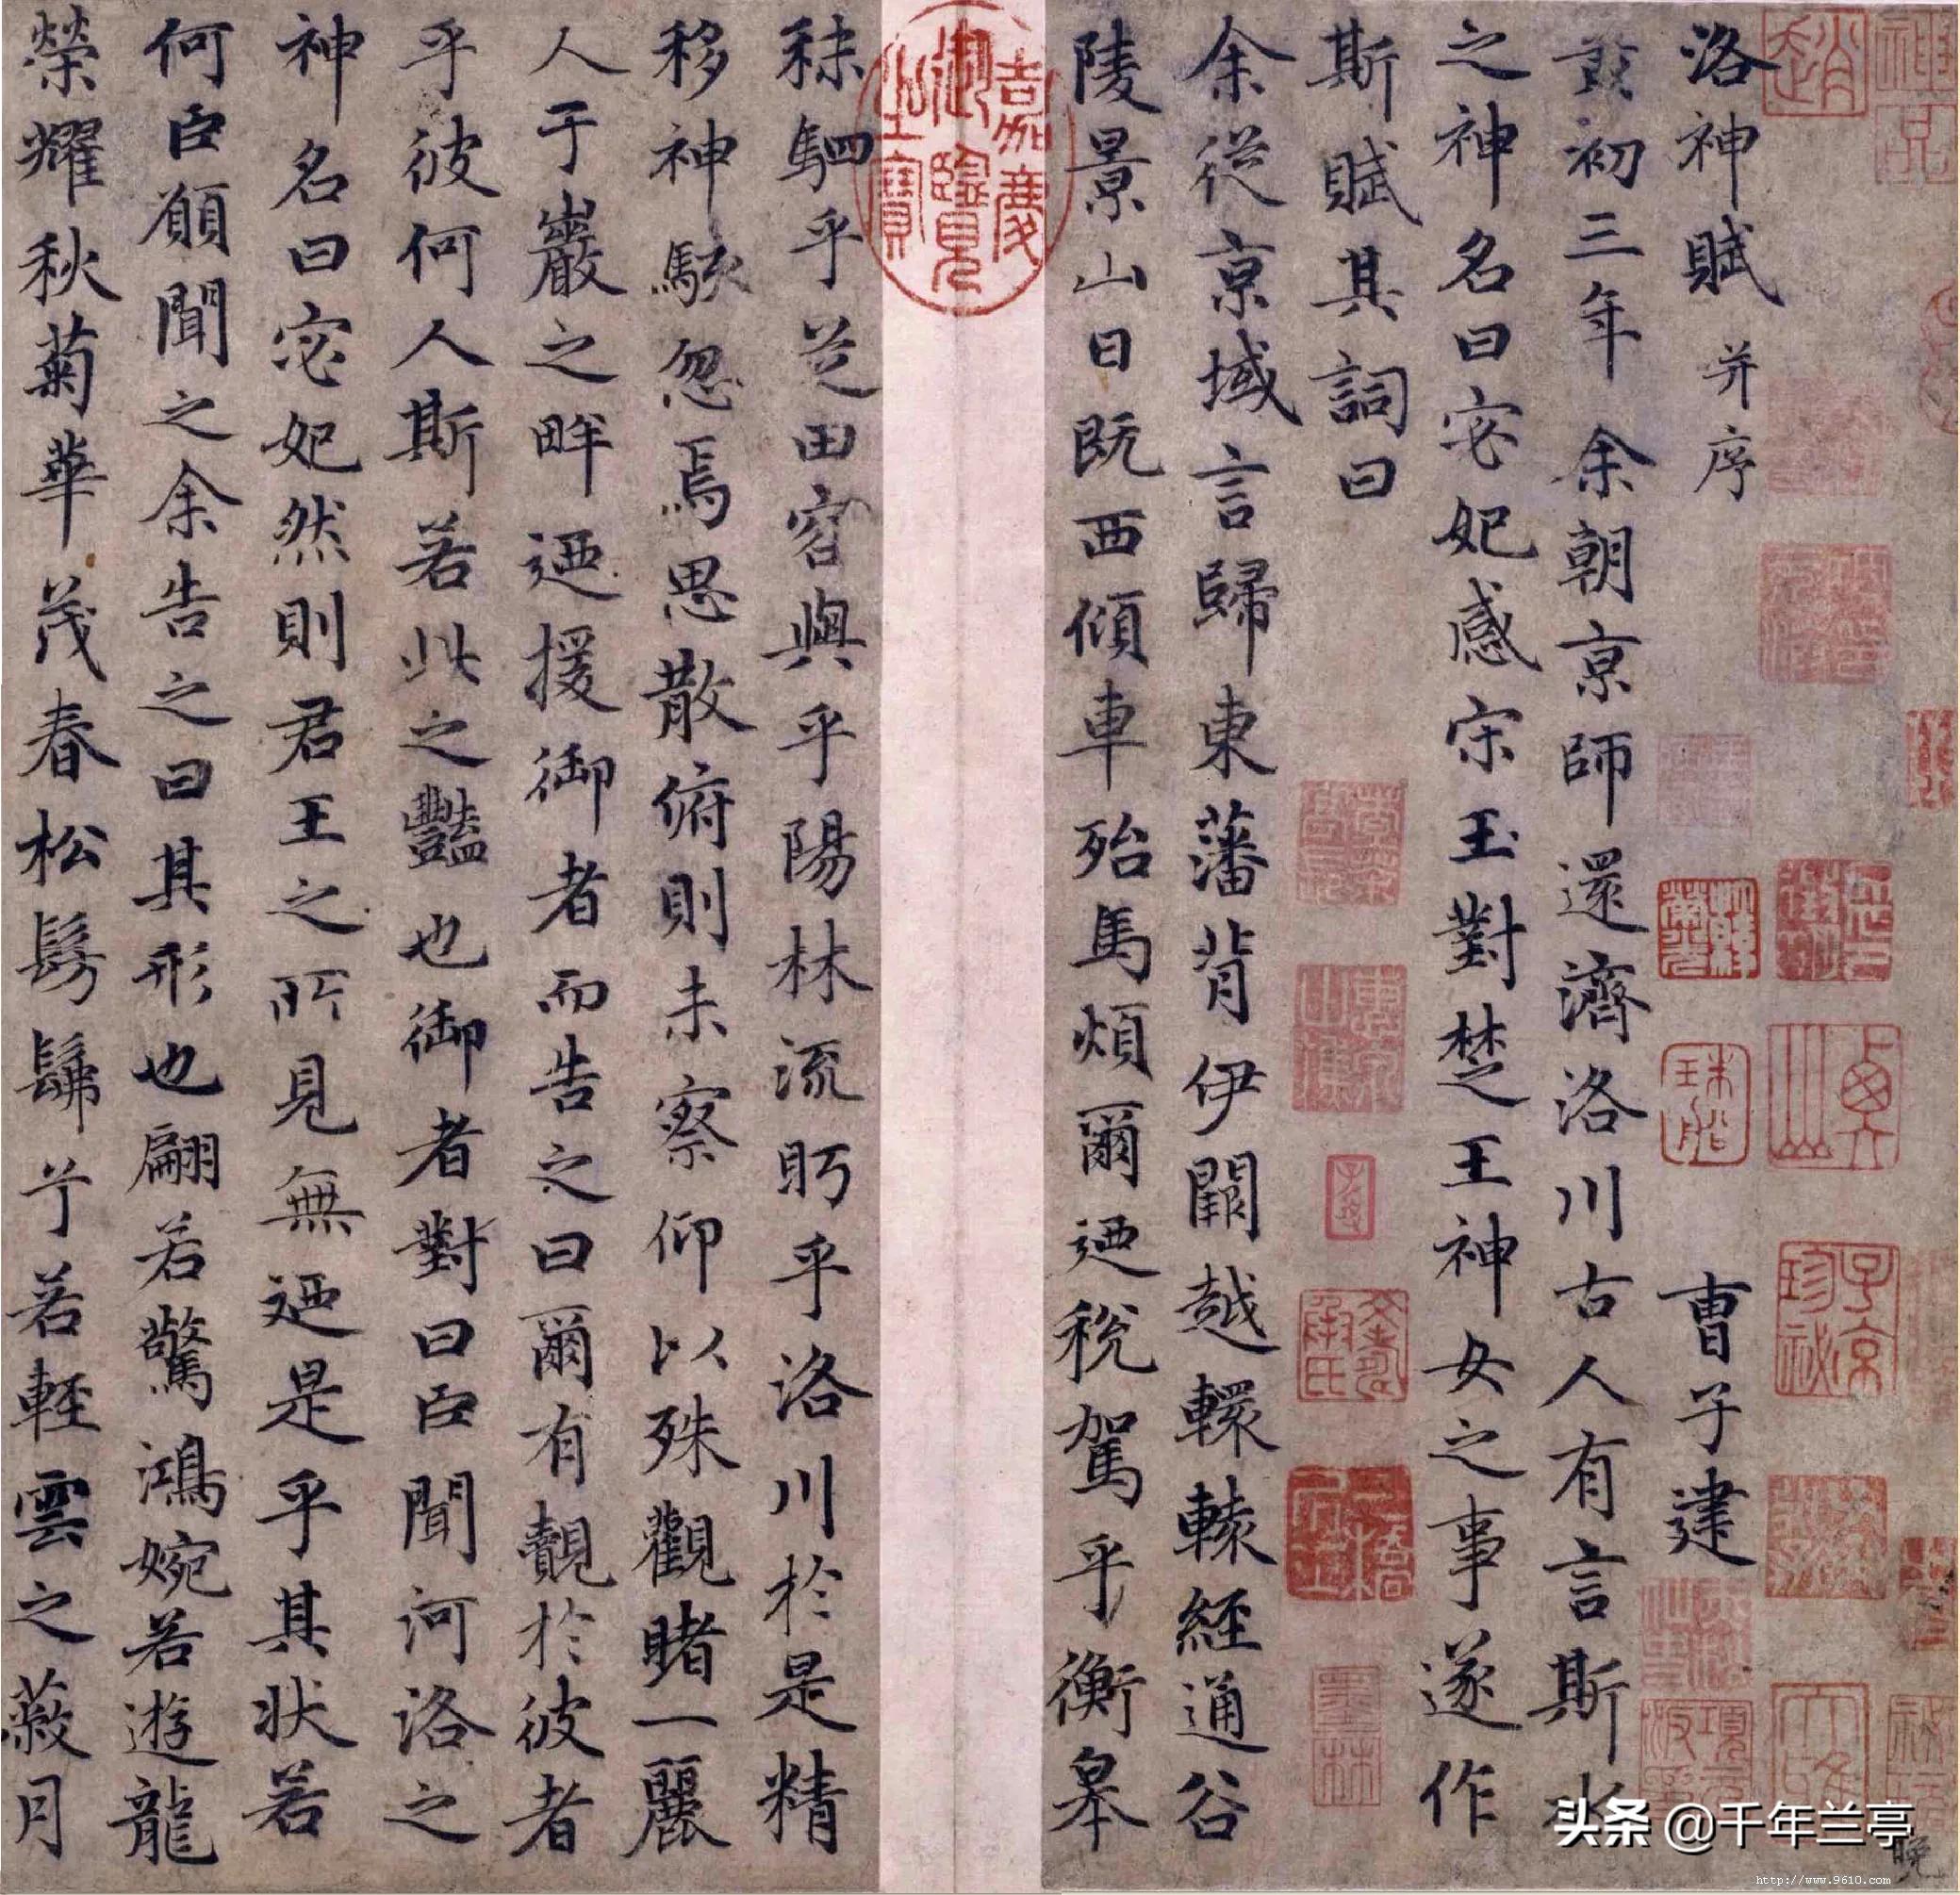 洛神賦 并序 曹子建
黃初三年余朝京師還濟洛川古人有言斯水
之神名曰宓妃感宋玉對楚王神女之事遂作
斯賦其詞曰
余從京域言歸東藩背伊闕越轘轅經通谷
陵景山日既西傾車殆馬煩爾迺稅駕乎衡皋
秣駟乎芝田容與乎陽林流眄乎洛川於是精
移神駭忽焉思散俯則未察仰以殊觀睹一麗
人于巖之畔迺援御者而告之曰爾有覿於彼者
乎彼何人斯若此之豔也御者對曰臣聞河洛之
神名曰宓妃然則君王之所見無迺是乎其状若
何臣願聞之余告之曰其形也翩若驚鴻婉若遊龍
榮耀秋菊華茂春松髣髴兮若輕雲之蔽月
嘉慶
御覽
之寶
趙
子京
珍祕
墨林
头条 @千年兰亭
http://www.9610.com